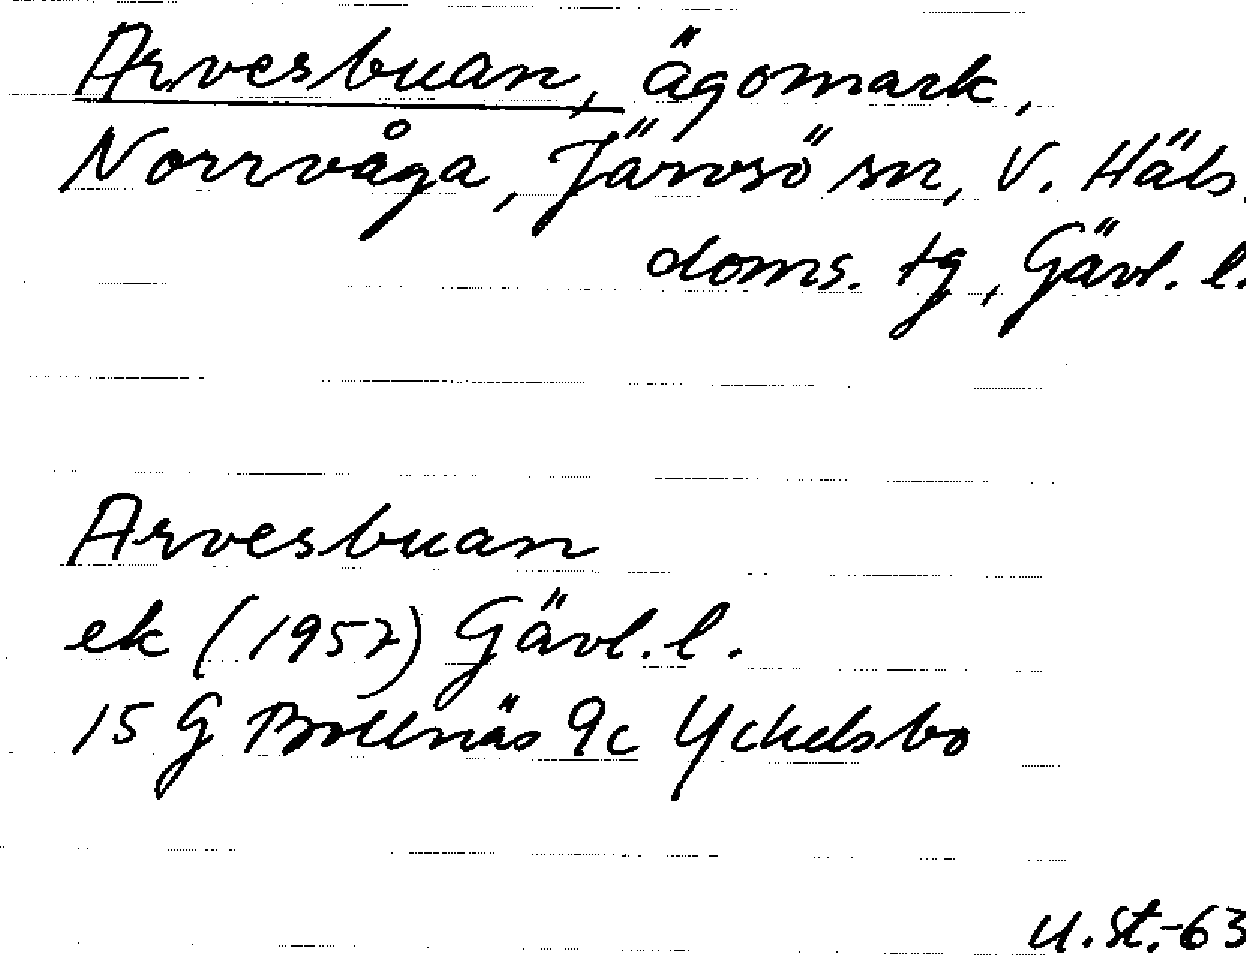 Arvesbuan, ägomark,
Norrvåga, Järvsö sn, V. Häls.
doms. tg, Gävl. l.
Arvesbuan
ek (1957) Gävl. l.
15 G Bollnäs 9c Yckelsbo
U. St.-63